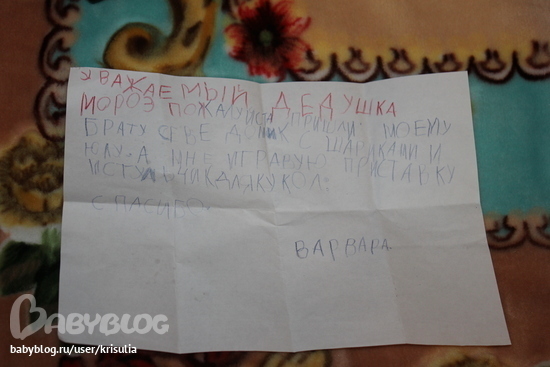 УВАЖАЕМЫЙ ДЕДУШКА
МОРОЗ ПОЖАЛУЙСТА ПРИШЛИ МОЕМУ
БРАТУ ДОМИК С ШАРИКАМИ И
А МНЕ ИГРАВУЮ ПРИСТАВКУ
И СТУЛЬЧИК ДЛЯ КУКОЛ.
СПАСИБО.
ВАРВАРА
BABYBLOG
babyblog.ru/user/krisulia